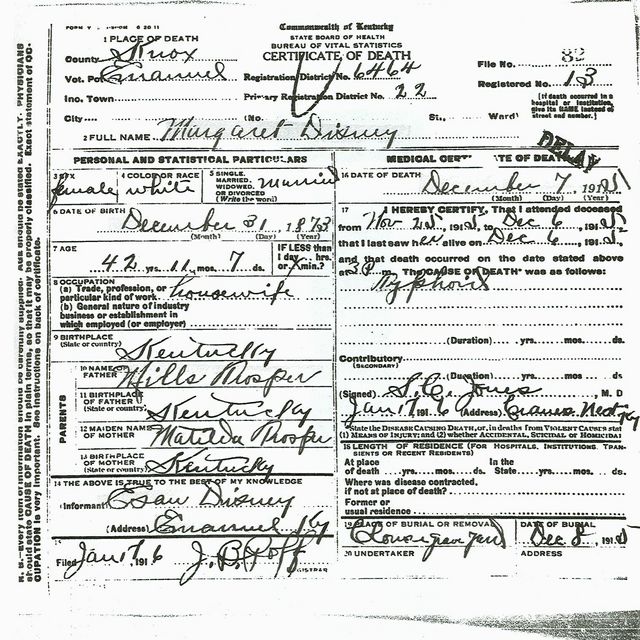 Commonwealth of Kentucky
STATE BOARD OF HEALTH
BUREAU OF VITAL STATISTICS
CERTIFICATE OF DEATH
1 PLACE OF DEATH
County Knox
Vot. Pct. Emanuel
Inc. Town
City
Registration District No. 6464
Primary Registration District No. 22
(No. St., Ward)
File No. 82
Registered No. 13
[If death occurred in a hospital or institution, give its NAME instead of street and number.]
2 FULL NAME Margaret Disney
DELAY
PERSONAL AND STATISTICAL PARTICULARS
3 SEX female
4 COLOR OR RACE white
5 SINGLE, MARRIED, WIDOWED, OR DIVORCED (Write the word) Married
6 DATE OF BIRTH
December 31, 1873
(Month) (Day) (Year)
7 AGE
42 yrs. 11 mos. 7 ds.
IF LESS than 1 day hrs. or min.?
8 OCCUPATION
(a) Trade, profession, or particular kind of work housewife
(b) General nature of industry
business or establishment in
which employed (or employer)
9 BIRTHPLACE
(State or country) Kentucky
PARENTS
10 NAME OF FATHER Mills Prosper
11 BIRTHPLACE OF FATHER
(State or country) Kentucky
12 MAIDEN NAME OF MOTHER Matilda Prosper
13 BIRTHPLACE OF MOTHER
(State or country) Kentucky
14 THE ABOVE IS TRUE TO THE BEST OF MY KNOWLEDGE
(Informant) Esau Disney
(Address) Emanuel Ky
15
Filed Jan 17, 1916 J. B. Goff
REGISTRAR
MEDICAL CERTIFICATE OF DEATH
16 DATE OF DEATH
December 7, 1915
(Month) (Day) (Year)
17 I HEREBY CERTIFY, That I attended deceased
from Nov 25, 1915, to Dec 6, 1915
that I last saw her alive on Dec 6, 1915
and that death occurred on the date stated above
at 3 P m. The CAUSE OF DEATH* was as follows:
Typhoid
(Duration) yrs. mos. ds.
Contributory
(SECONDARY)
(Duration) yrs. mos. ds.
(Signed) S. C. Jones, M. D
Jan 17 1916 (Address) Ky
*State the DISEASE CAUSING DEATH, or, in deaths from VIOLENT CAUSES state
(1) MEANS OF INJURY; and (2) whether ACCIDENTAL, SUICIDAL or HOMICIDAL
18 LENGTH OF RESIDENCE (FOR HOSPITALS, INSTITUTIONS, TRANSIENTS OR RECENT RESIDENTS)
At place of death yrs. mos. ds. In the State yrs. mos. ds.
Where was disease contracted,
if not at place of death?
Former or
usual residence
19 PLACE OF BURIAL OR REMOVAL
DATE OF BURIAL
Dec 8, 1915
20 UNDERTAKER
ADDRESS